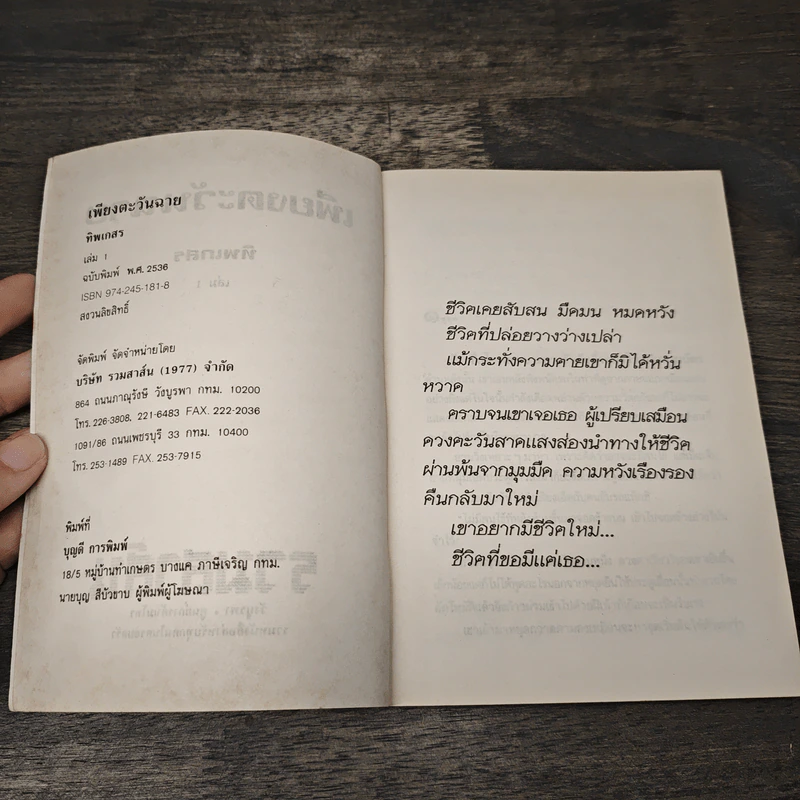 เพียงตะวันฉาย
ทิพเกสร
เล่ม 1
ฉบับพิมพ์ พ.ศ. 2536
ISBN 974-245-181-8
สงวนลิขสิทธิ์
จัดพิมพ์ จัดจำหน่ายโดย
บริษัท รวมสาส์น (1977) จำกัด
864 ถนนภาณุรังษี วังบูรพา กทม. 10200
โทร. 226-3808, 221-6483 FAX. 222-2036
1091/86 ถนนเพชรบุรี 33 กทม. 10400
โทร. 253-1489 FAX. 253-7915
พิมพ์ที่
บุญดี การพิมพ์
18/5 หมู่บ้านท่าเกษตร บางแค ภาษีเจริญ กทม.
นายบุญ สีบัวขาบ ผู้พิมพ์ผู้โฆษณา
ชีวิตเคยสับสน มืดมน หมดหวัง
ชีวิตที่ปล่อยวางว่างเปล่า
แม้กระทั่งความตายเขาก็มิได้หวั่น
หวาด
ตราบจนเขาเจอเธอ ผู้เปรียบเสมือน
ดวงตะวันสาดแสงส่องนำทางให้ชีวิต
ผ่านพ้นจากมุมมืด ความหวังเรืองรอง
คืนกลับมาใหม่
เขาอยากมีชีวิตใหม่...
ชีวิตที่ขอมีแค่เธอ...